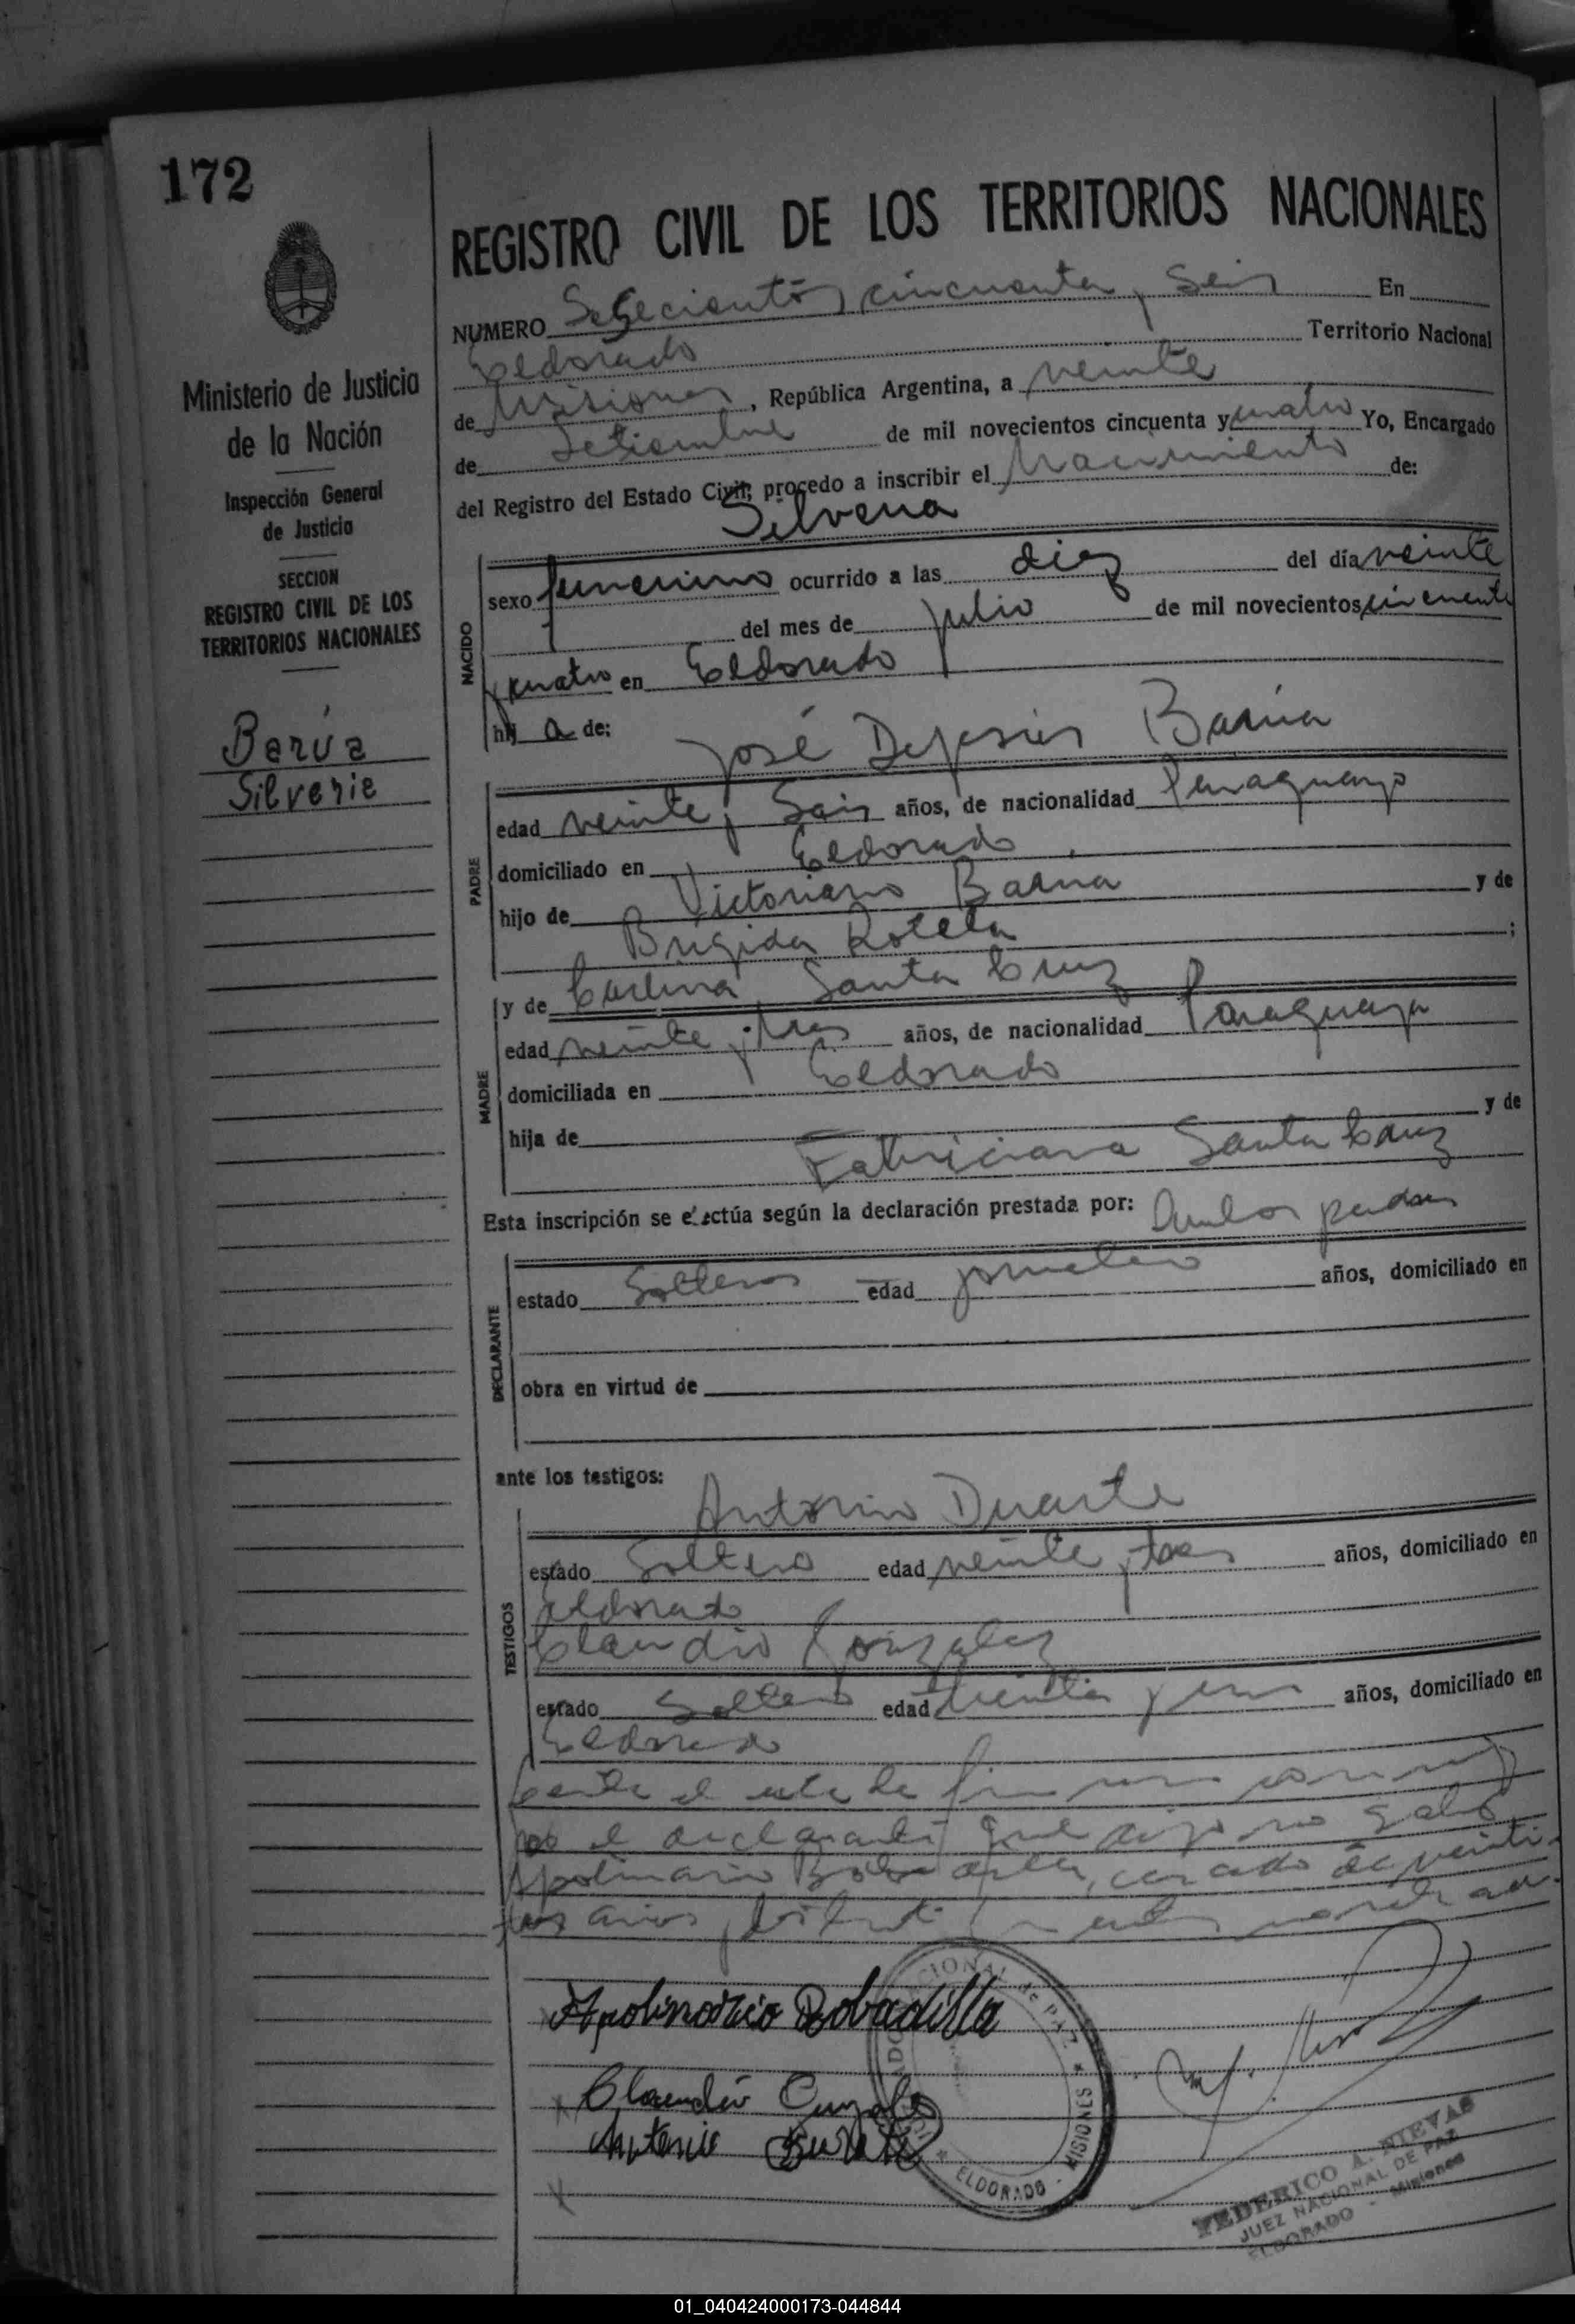 172
REGISTRO CIVIL DE LOS TERRITORIOS NACIONALES
NUMERO Setecientos cincuenta y Seis En
Eldorado Territorio Nacional
de Misiones, República Argentina, a veinte
de Setiembre de mil novecientos cincuenta y cuatro Yo, Encargado
del Registro del Estado Civil, procedo a inscribir el Nacimiento de:
Ministerio de Justicia
de la Nación
Inspección General
de Justicia
SECCION
REGISTRO CIVIL DE LOS
TERRITORIOS NACIONALES
Barúa
Silveria
Silveria
NACIDO
sexo femenino ocurrido a las diez del día veinte
del mes de julio de mil novecientos cincuenta
y cuatro en Eldorado
hij a de: José Dejesús Barúa
PADRE
edad veinte y Seis años, de nacionalidad Paraguayo
domiciliado en Eldorado
hijo de Victoriano Barua y de
Brigida Rotela ;
MADRE
y de Santa Cruz
edad veinte y tres años, de nacionalidad Paraguaya
domiciliada en Eldorado
hija de y de
Fabriciana Santa Cruz
Esta inscripción se efectúa según la declaración prestada por: Ambos padres
DECLARANTE
estado Solteros edad años, domiciliado en
obra en virtud de
ante los testigos:
TESTIGOS
Antonio Duarte
estado Soltero edad veinte y tres años, domiciliado en
Eldorado
Claudio Gonzalez
estado Soltero edad treinta y un años, domiciliado en
Eldorado
el declarante que dijo no
Apolinario Bobadilla, casado de veinti
tres años
Apolinario Bobadilla
Claudio Gonzales
Antonio Duarte
NACIONAL de PAZ
ELDORADO - MISIONES
FEDERICO A. NIEVAS
JUEZ NACIONAL DE PAZ
ELDORADO - Misiones
01_040424000173-044844